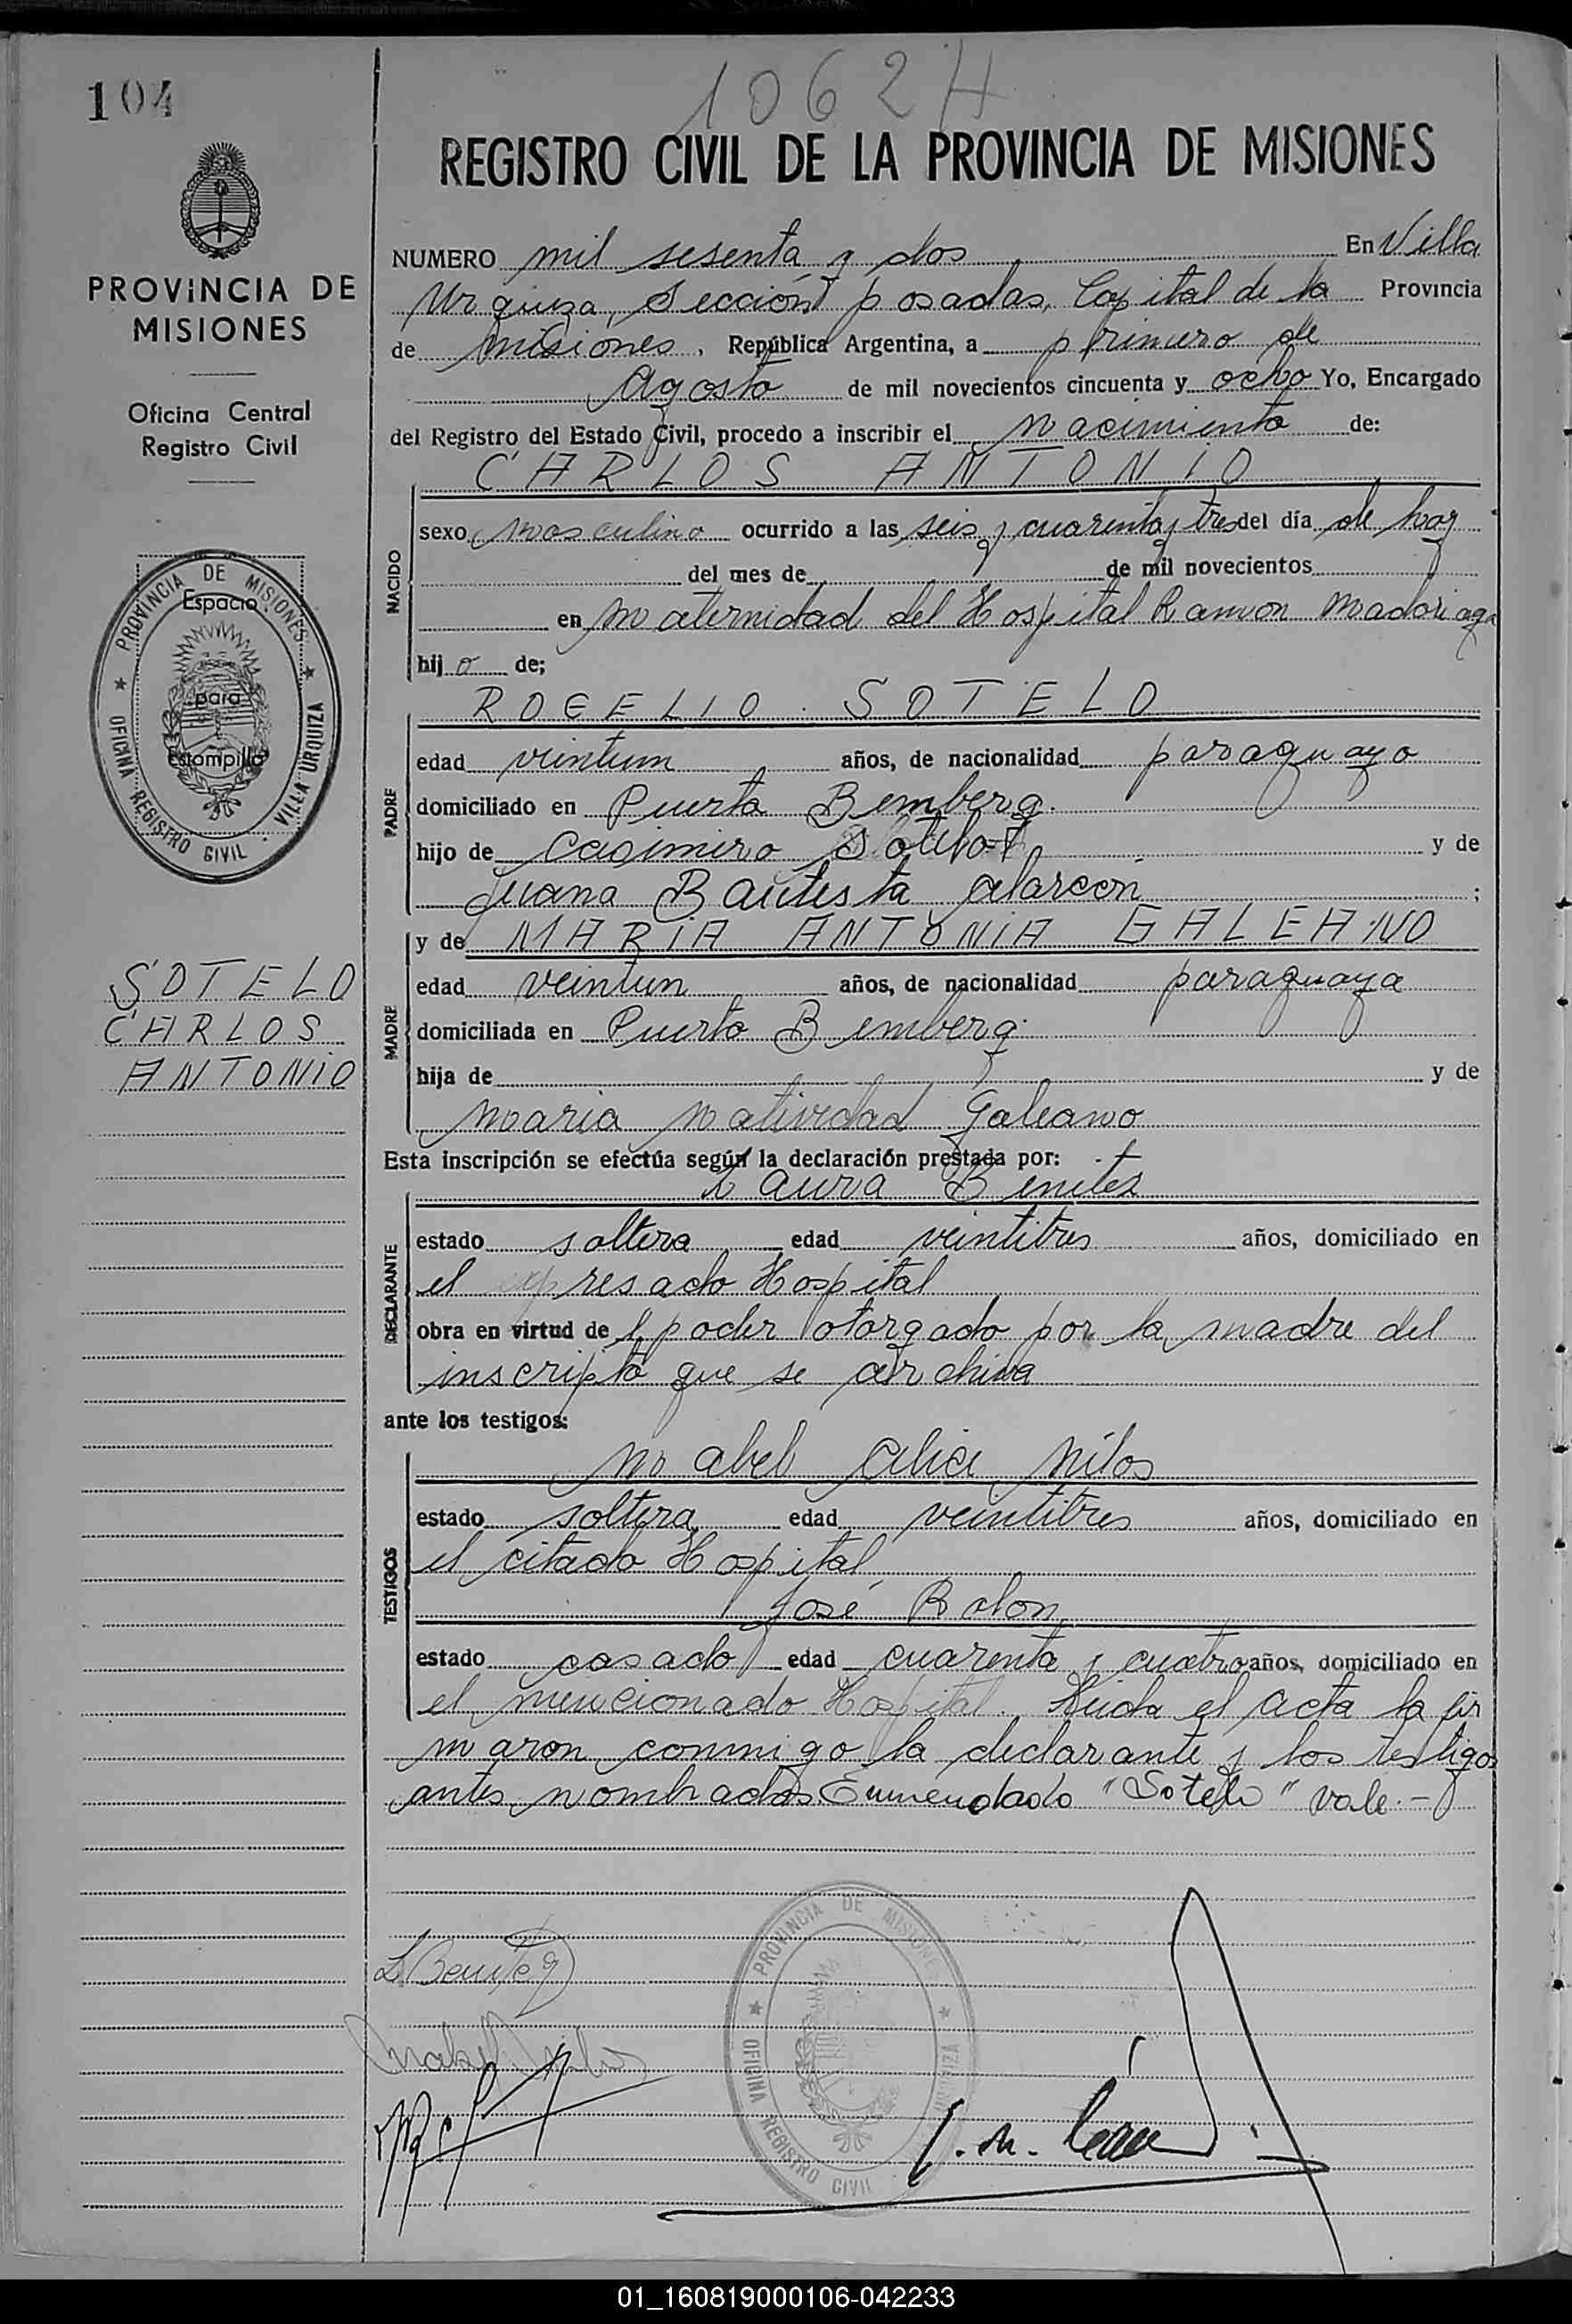 104
1062 H
PROVINCIA DE
MISIONES
Oficina Central
Registro Civil
PROVINCIA DE MISIONES
OFICINA REGISTRO CIVIL - VILLA URQUIZA
Espacio
para
Estampilla
SOTELO
CARLOS
ANTONIO
REGISTRO CIVIL DE LA PROVINCIA DE MISIONES
NUMERO mil sesenta y dos En Villa
Urquiza, Sección posadas, Capital de la Provincia
de Misiones, República Argentina, a primero de
Agosto de mil novecientos cincuenta y ocho Yo, Encargado
del Registro del Estado Civil, procedo a inscribir el nacimiento de:
CARLOS ANTONIO
NACIDO
sexo masculino ocurrido a las seis y cuarenta y tres del día de hoy
del mes de de mil novecientos
en maternidad del Hospital Ramon Madariaga
hijo de;
ROGELIO SOTELO
PADRE
edad veintiun años, de nacionalidad paraguayo
domiciliado en Puerto Bemberg.
hijo de Casimiro Sotelo y de
Juana Bautista Alarcon ;
y de MARIA ANTONIA GALEANO
MADRE
edad veintiun años, de nacionalidad paraguaya
domiciliada en Puerto Bemberg.
hija de y de
Maria Natividad Galeano
Esta inscripción se efectúa según la declaración prestada por:
Laura Benitez
DECLARANTE
estado soltera edad veintitres años, domiciliado en
el expresado Hospital
obra en virtud del poder otorgado por la madre del
inscripto que se archiva
ante los testigos:
Mabel Milos
TESTIGOS
estado soltera edad veintitres años, domiciliado en
el citado Hospital
José Rolon
estado casado edad cuarenta y cuatro años, domiciliado en
el mencionado Hospital. Leida el acta la fir
maron conmigo la declarante y los testigos
antes nombrados. Enmendado "Sotelo" vale.-
L Benitez
PROVINCIA DE MISIONES
OFICINA REGISTRO CIVIL URQUIZA
01_160819000106-042233